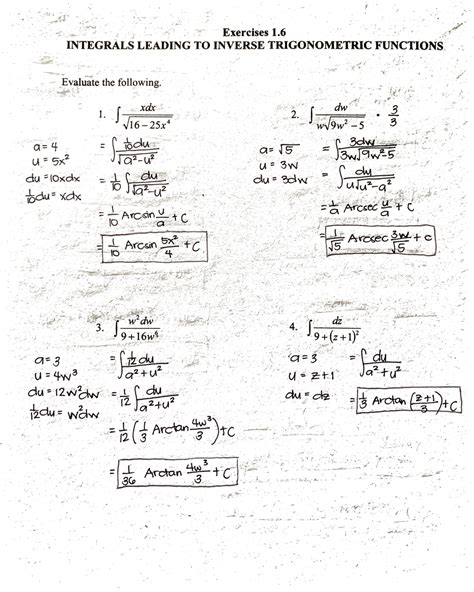 Exercises 1.6
INTEGRALS LEADING TO INVERSE TRIGONOMETRIC FUNCTIONS
Evaluate the following.
1. ∫ xdx / √(16 − 25x⁴)
a = 4
u = 5x²
du = 10xdx
1/10 du = xdx
= ∫ (1/10 du) / √(a² − u²)
= 1/10 ∫ du / √(a² − u²)
= 1/10 Arcsin u/a + C
= 1/10 Arcsin 5x²/4 + C
2. ∫ dw / (w√(9w² − 5)) · 3/3
a = √5
u = 3w
du = 3dw
= ∫ 3dw / (3w√(9w² − 5))
= ∫ du / (u√(u² − a²))
= 1/a Arcsec u/a + C
= 1/√5 Arcsec 3w/√5 + C
3. ∫ w²dw / (9 + 16w⁶)
a = 3
u = 4w³
du = 12w²dw
1/12 du = w²dw
= ∫ (1/12 du) / (a² + u²)
= 1/12 ∫ du / (a² + u²)
= 1/12 (1/3 Arctan 4w³/3) + C
= 1/36 Arctan 4w³/3 + C
4. ∫ dz / (9 + (z + 1)²)
a = 3
u = z + 1
du = dz
= ∫ du / (a² + u²)
= 1/3 Arctan (z + 1)/3 + C